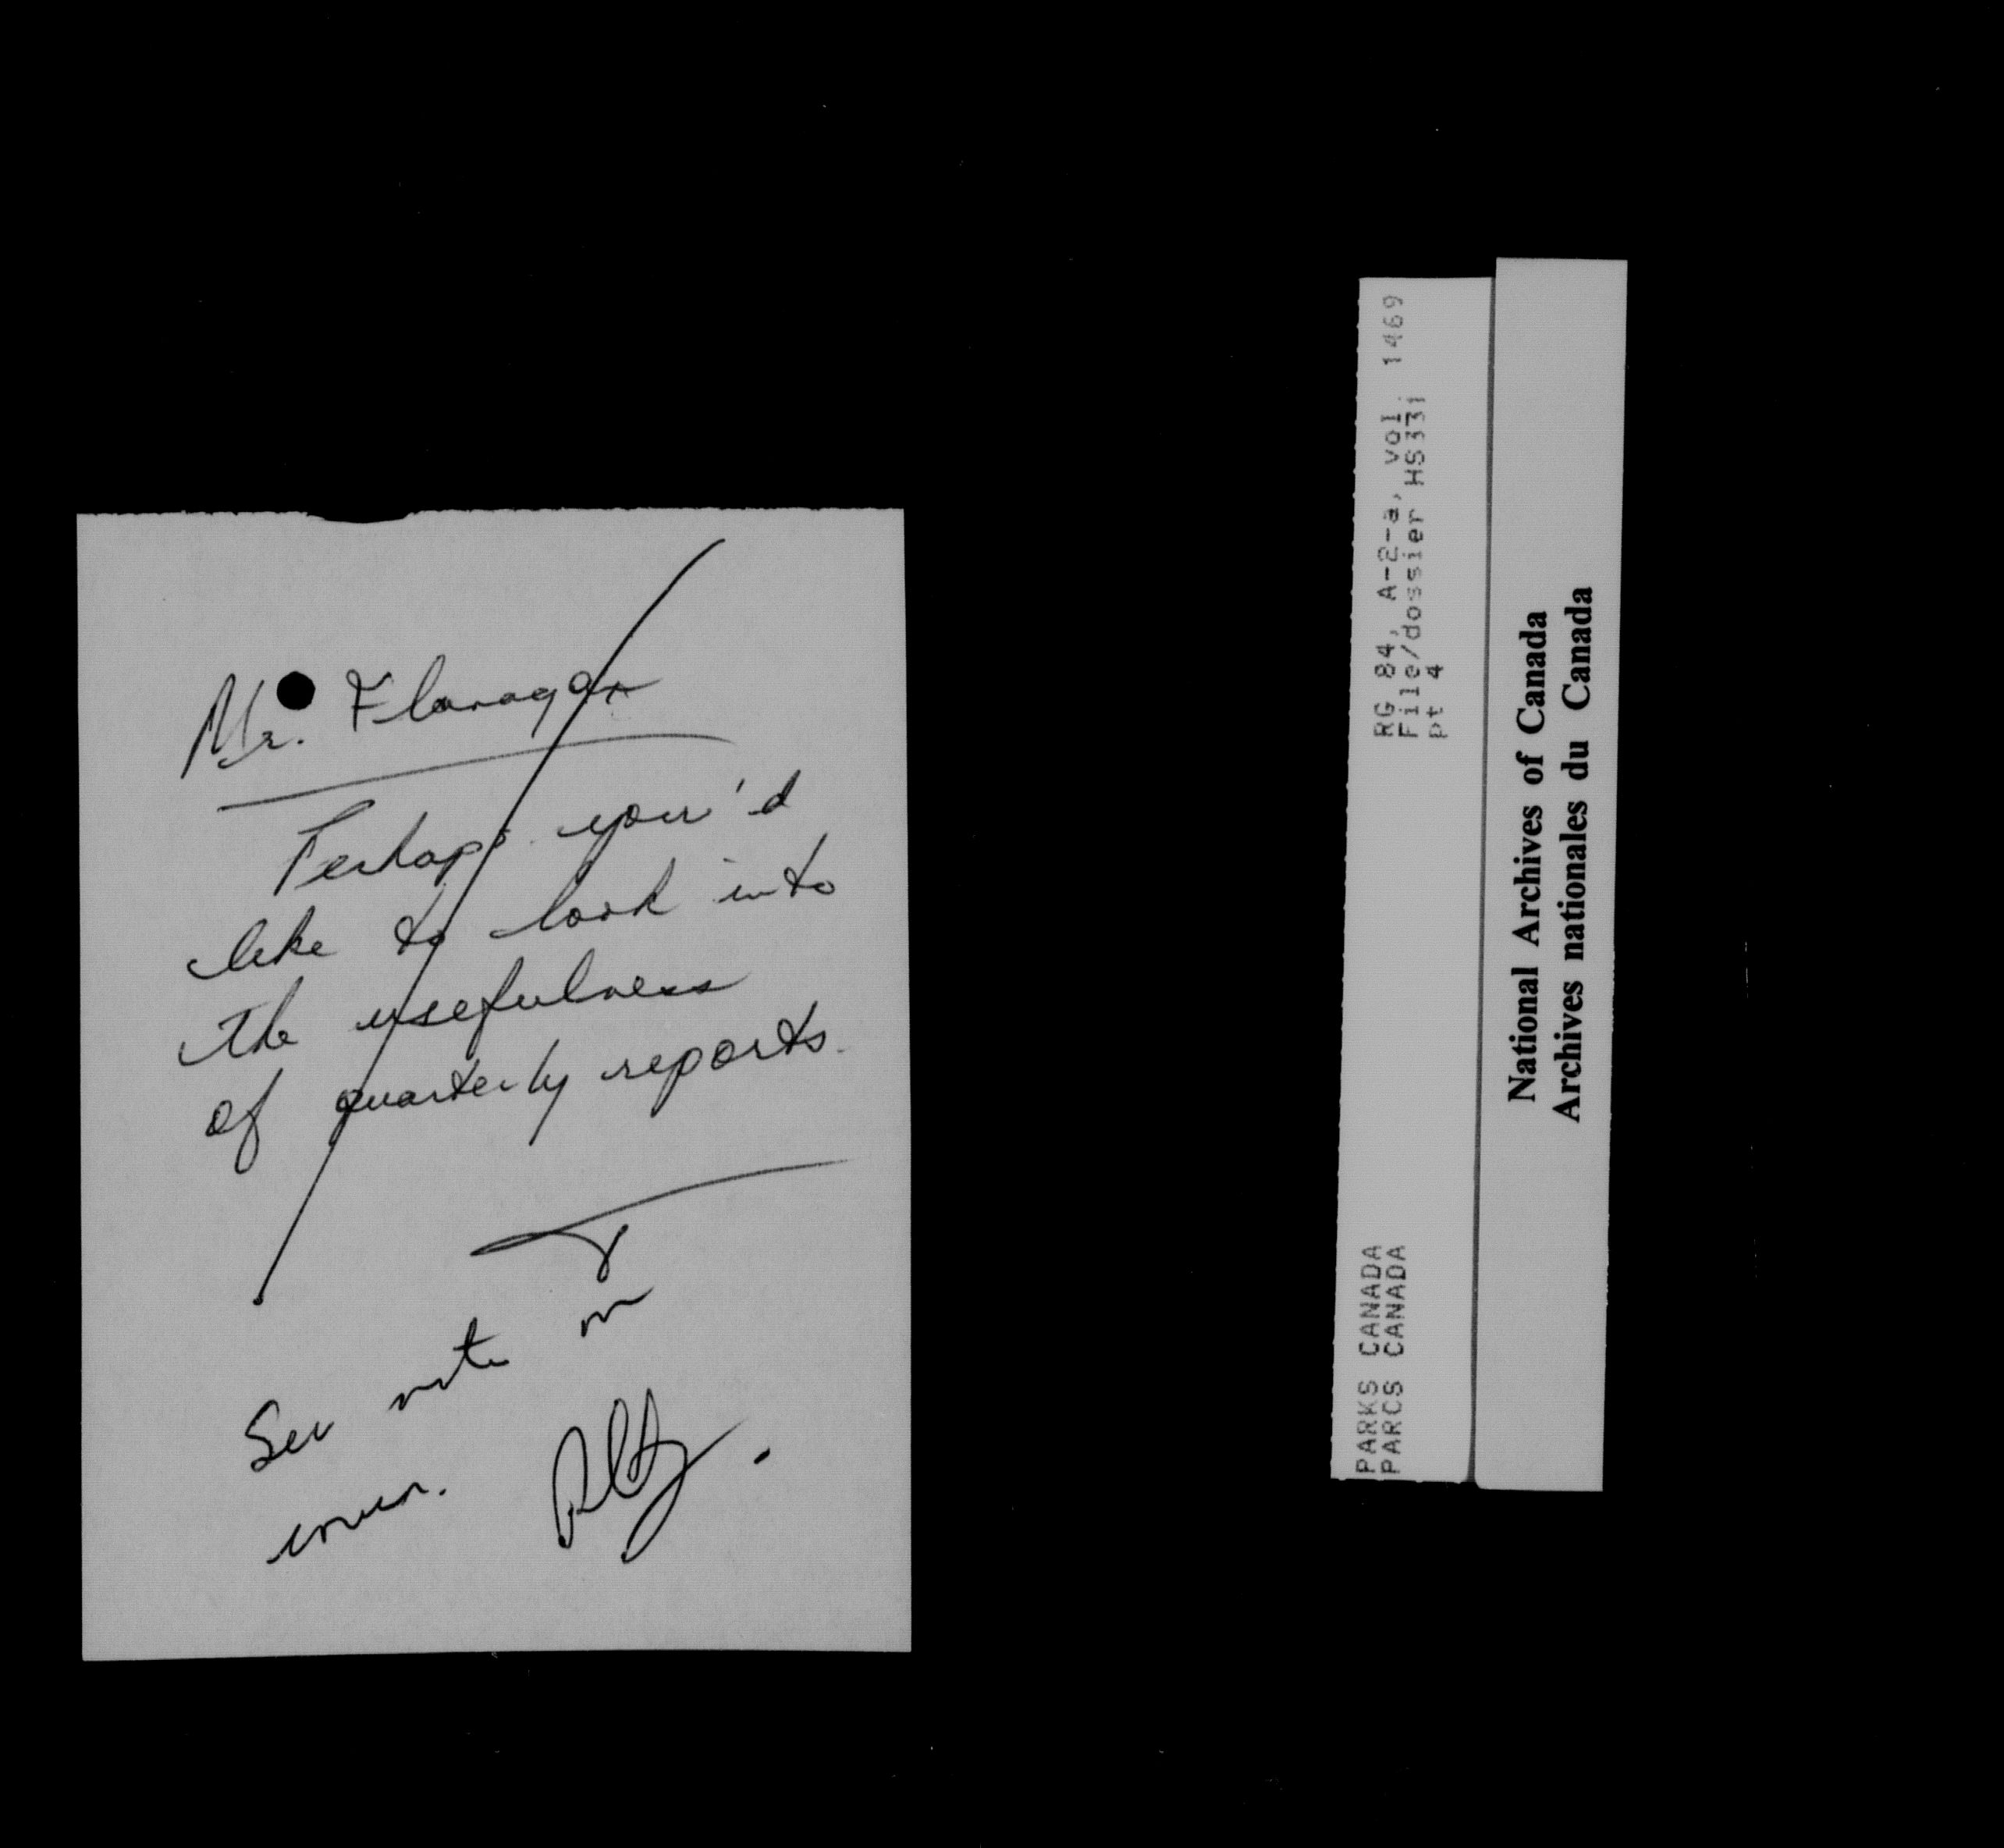 Mr. Flanagan
Perhaps you'd
like to look into
the usefulness
of quarterly reports.
See note on
cover.
RG 84, A-2-a, vol. 1469
File/dossier HS331
pt 4
PARKS CANADA
PARCS CANADA
National Archives of Canada
Archives nationales du Canada